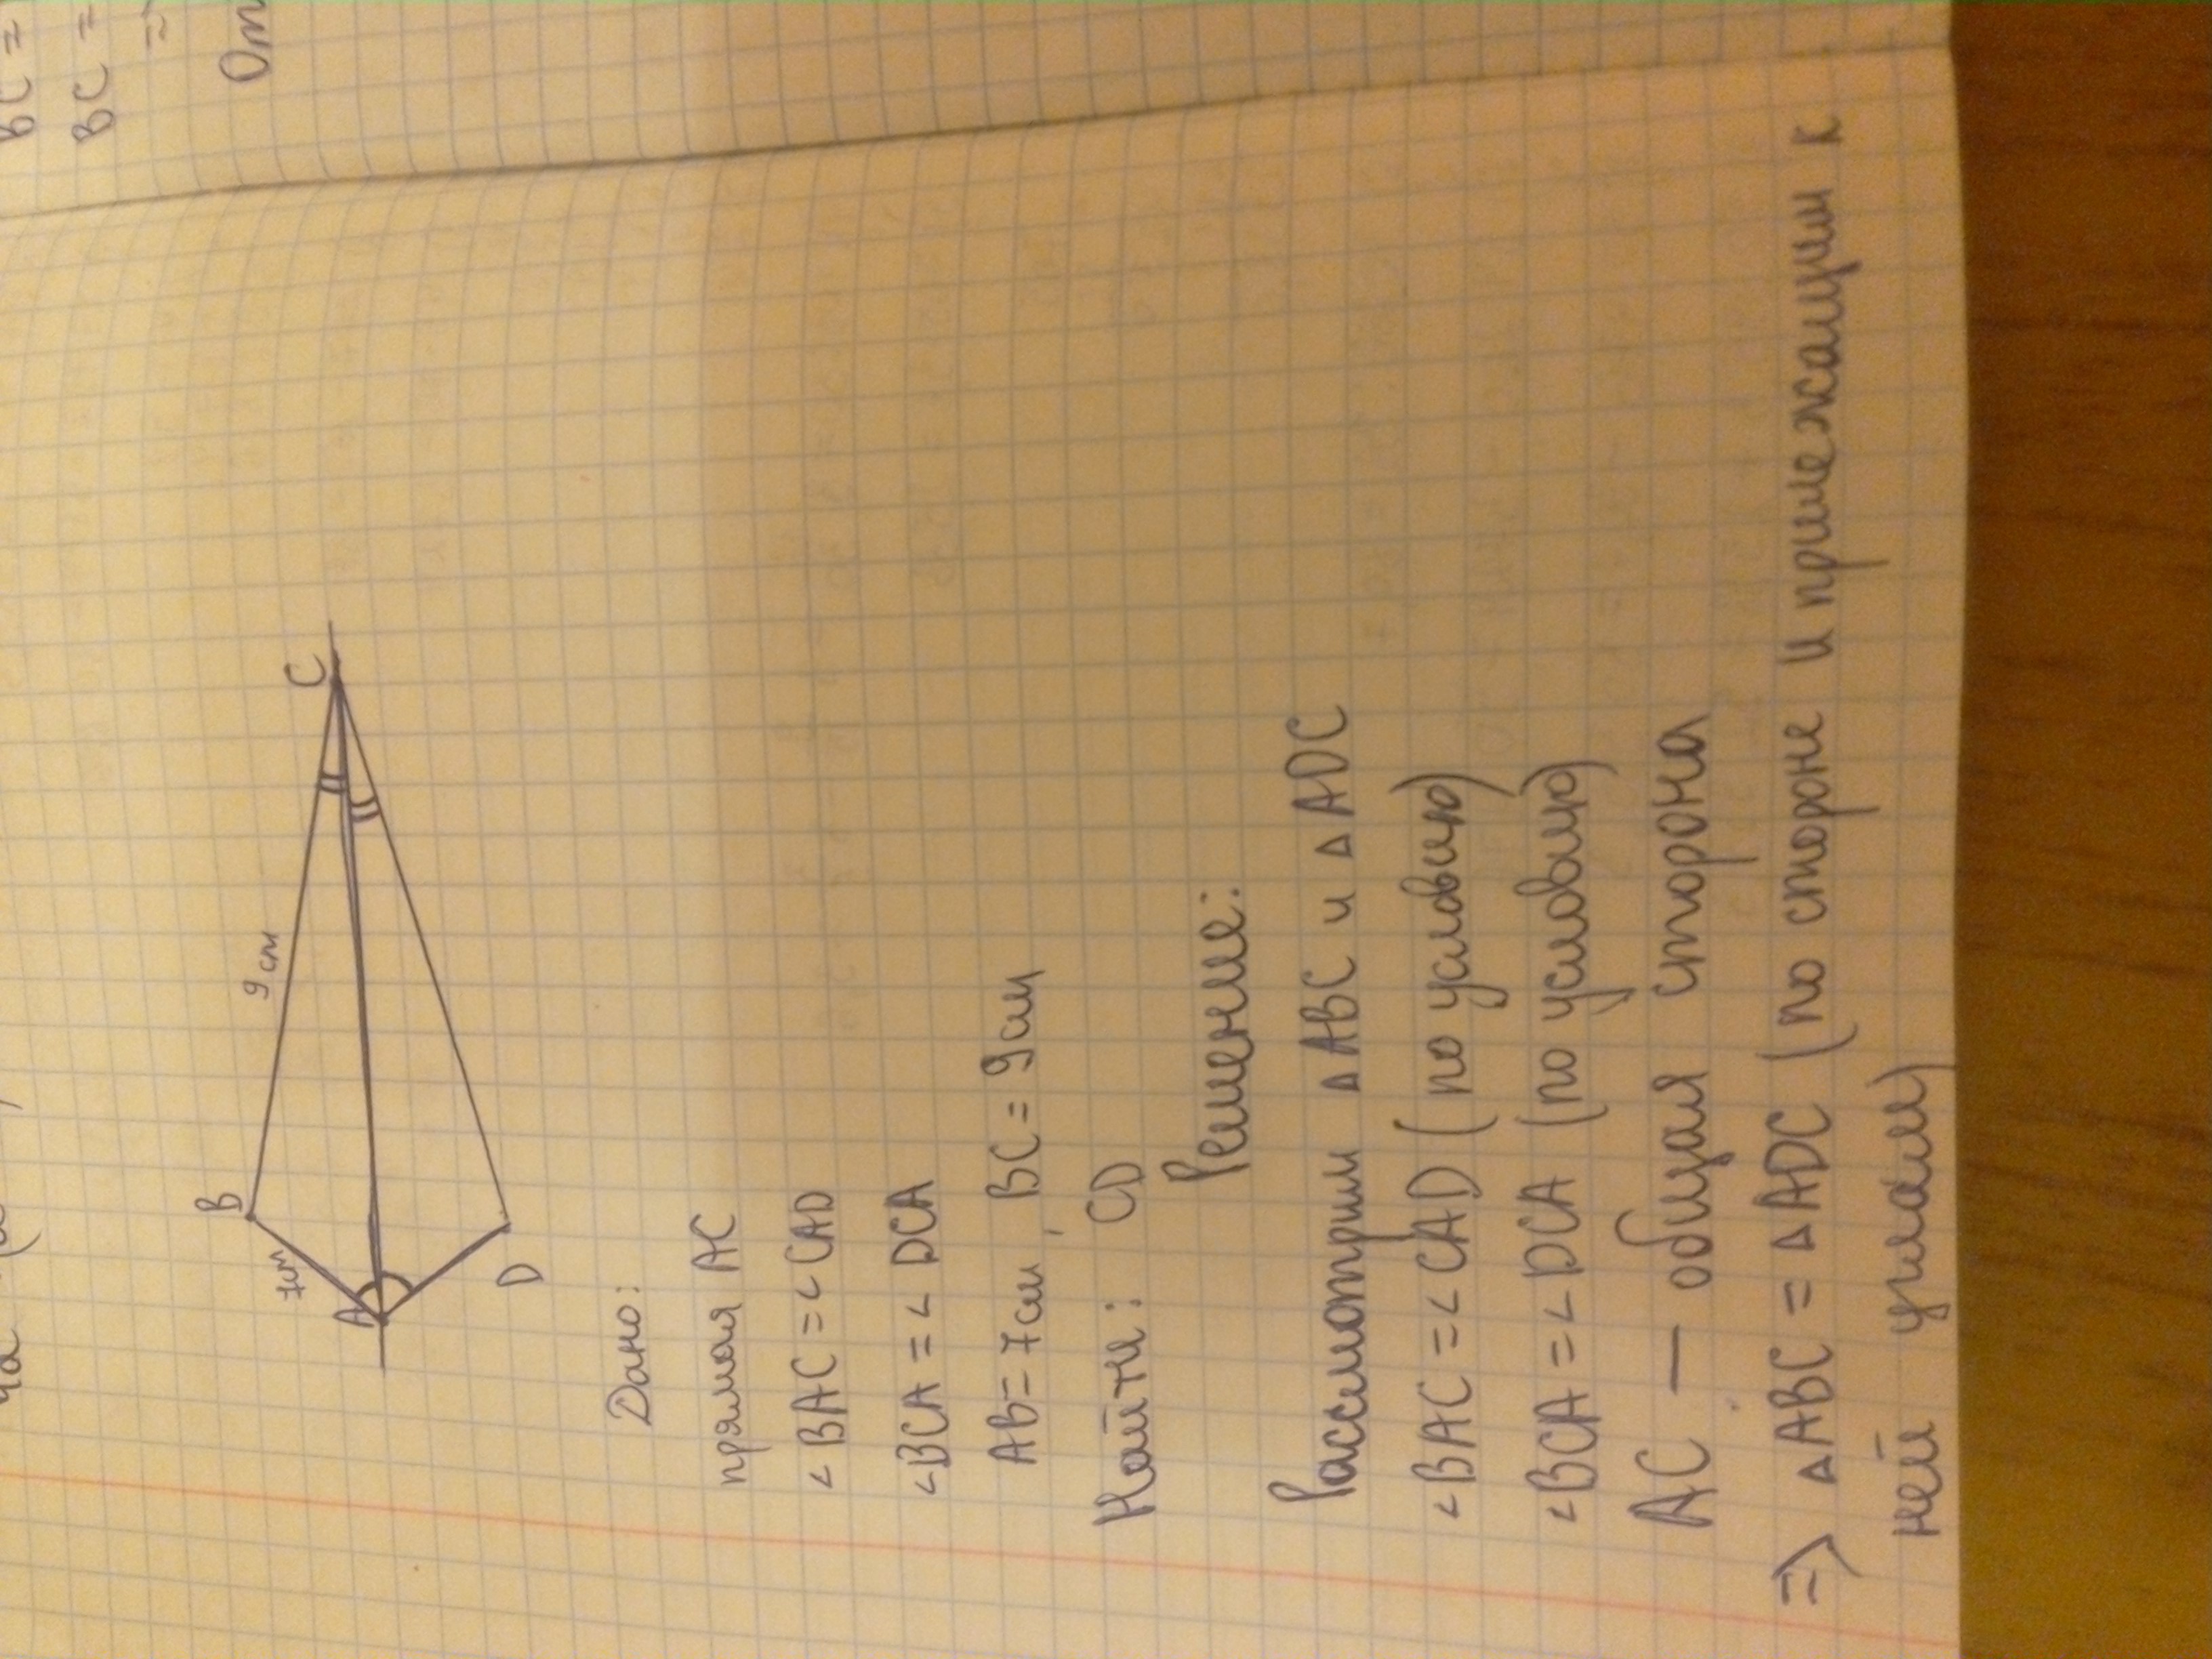 BC =
BC =
=>
От
B
9 см
C
7см
A
D
Дано:
прямая AC
∠BAC = ∠CAD
∠BCA = ∠DCA
AB = 7см, BC = 9см
Найти: CD
Решение:
Рассмотрим ΔABC и ΔADC
∠BAC = ∠CAD (по условию)
∠BCA = ∠DCA (по условию)
AC — общая сторона
=> ΔABC = ΔADC (по стороне и прилежащим к
ней углам)